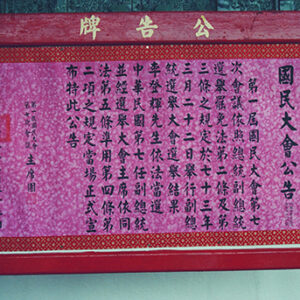 公告牌
國民大會公告
第一屆國民大會第七
次會議依照總統副總統
選舉罷免法第二條及第
三條之規定於七十三年
三月二十二日舉行副總
統選舉大會選舉結果
李登輝先生依法當選
中華民國第七任副總統
並經選舉大會主席依同
法第五條準用第四條第
二項之規定當場正式宣
布特此公告
主席團